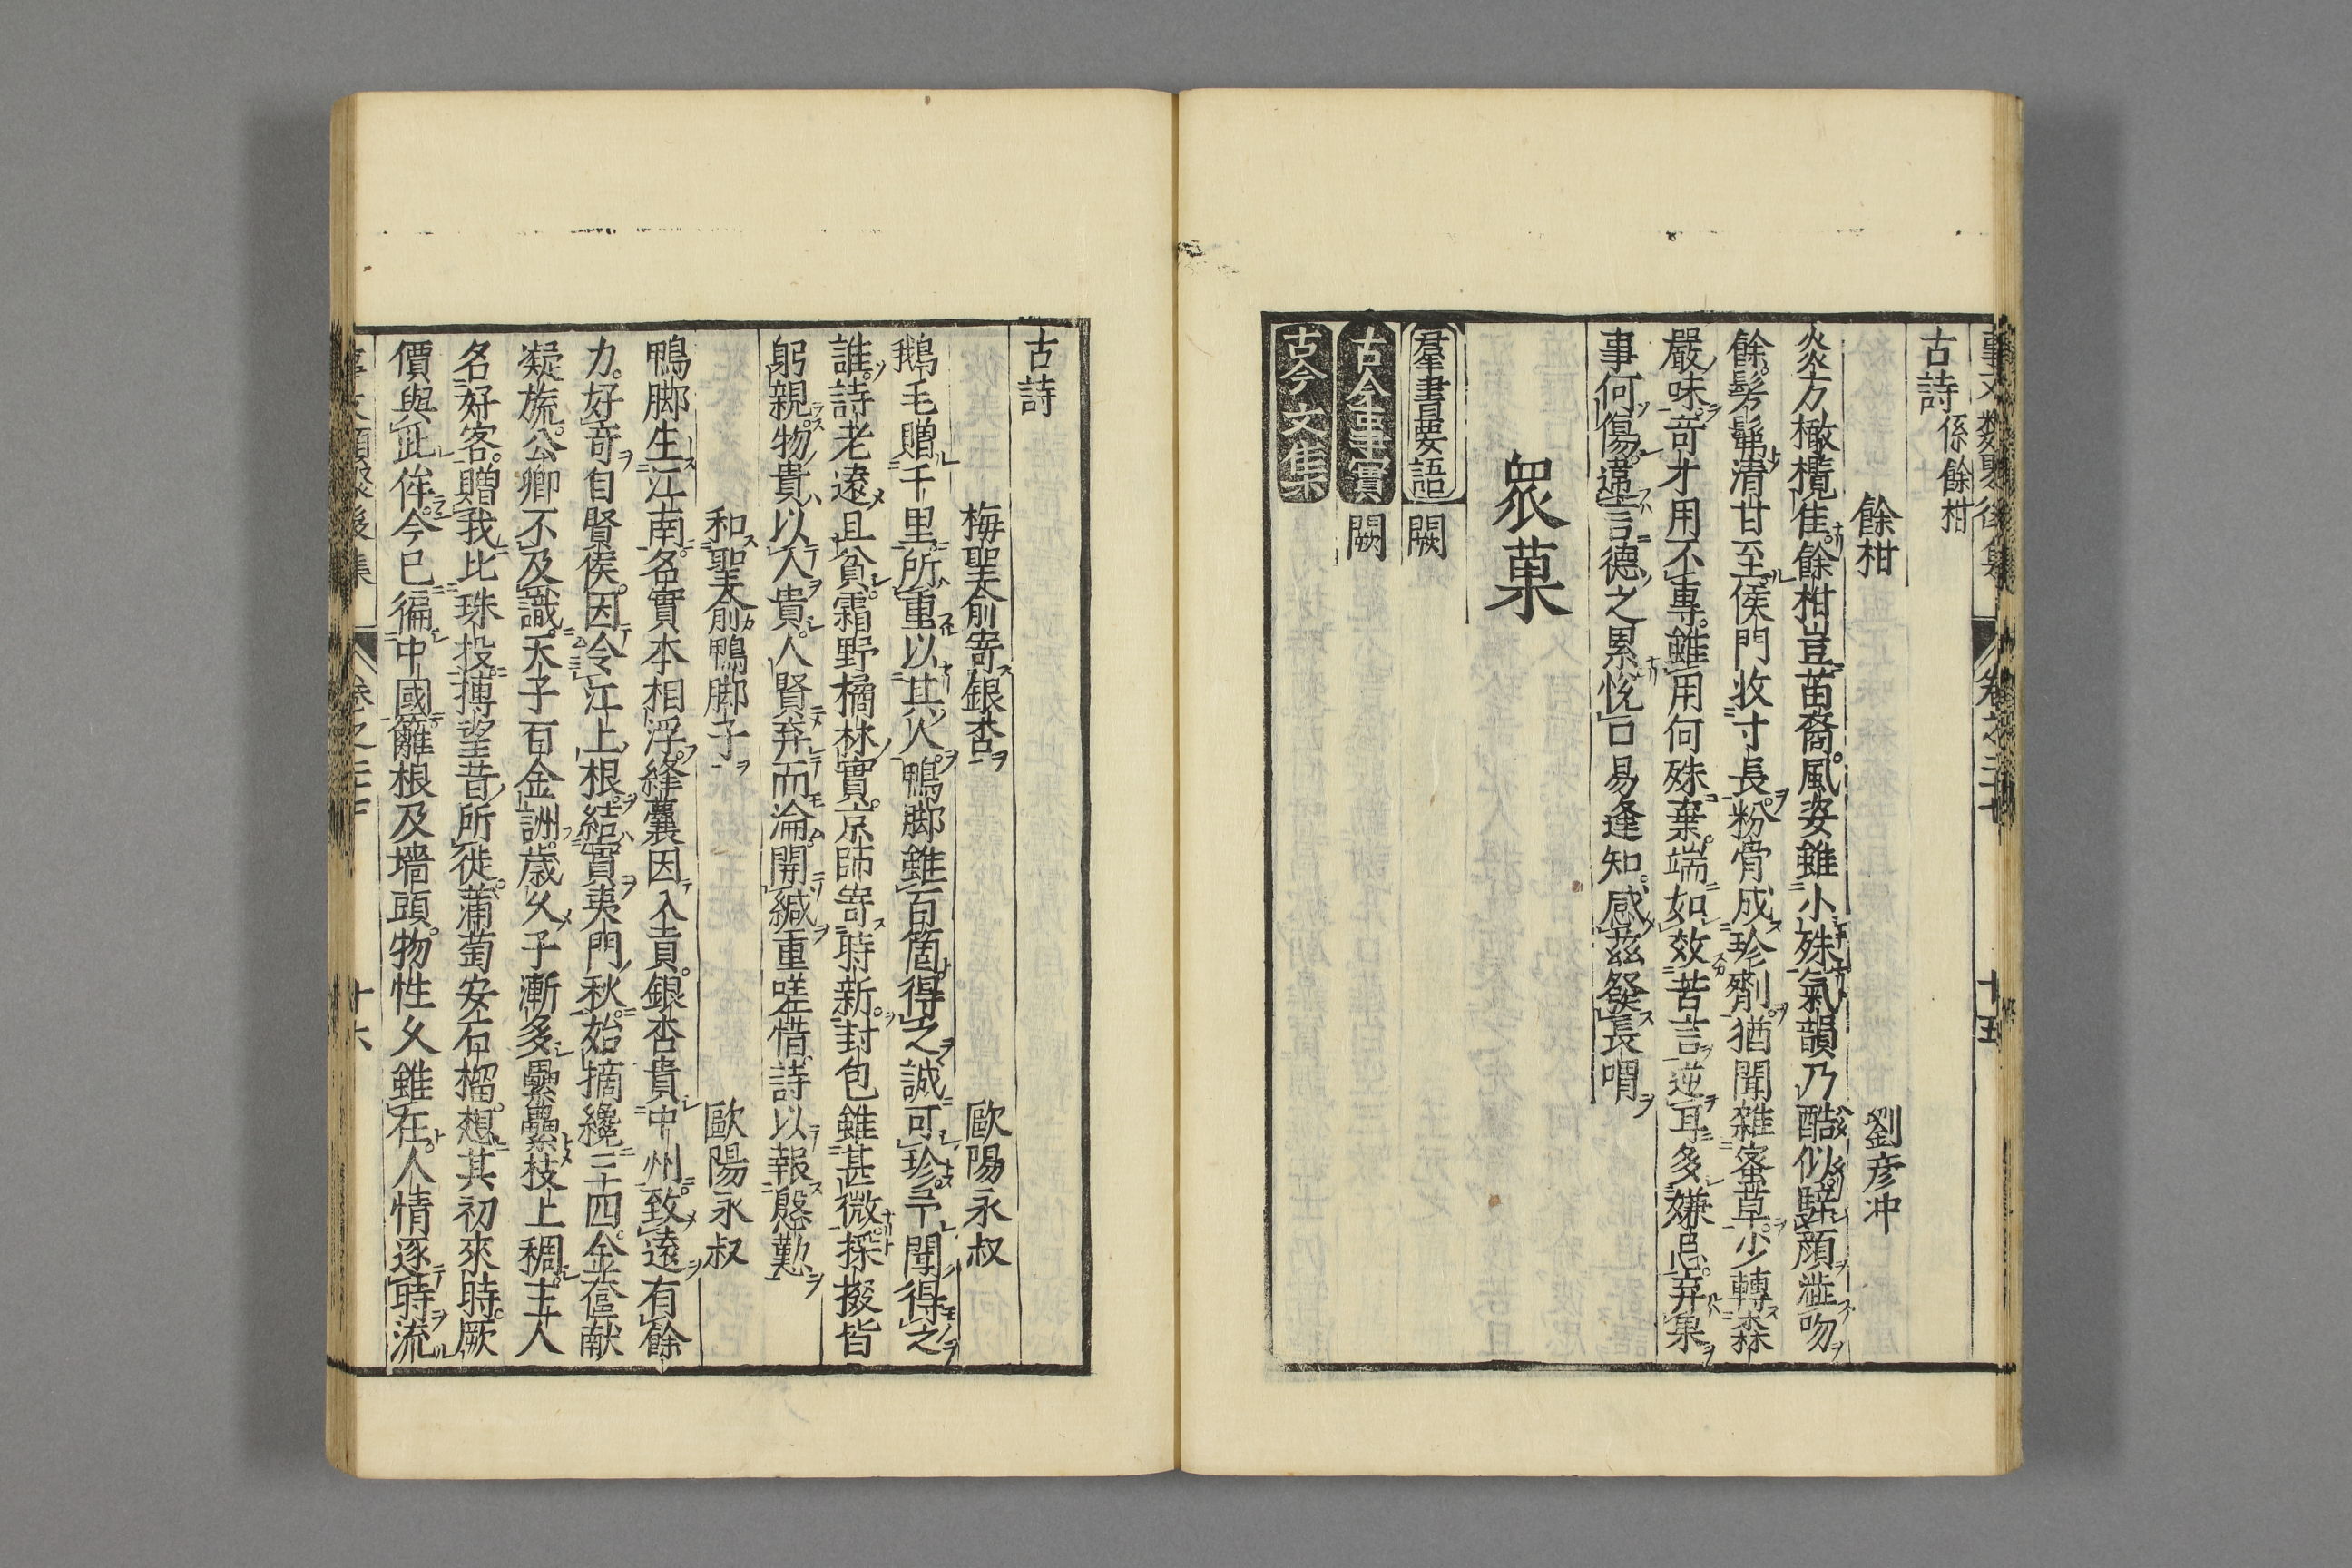 古詩 係餘柑
餘柑 劉彦冲
炎方橄欖佳餘柑豈苗裔風姿雖小殊氣韻乃酷似騂顔澁吻
餘髣髴清甘至侯門收寸長粉骨成珍劑猶聞雜蜜草少轉森
嚴味竒才用不專雖用何殊棄端如效苦言逆耳多嫌忌弃菓
事何傷違言德之累悅口易逢知感玆發長喟
衆菓
羣書要語 闕
古今事實 闕
古今文集
古詩
梅聖俞寄銀杏 歐陽永叔
鵝毛贈千里所重以其人鴨脚雖百箇得之誠可珍弔聞得之
誰詩老遠且貧霜野摘林實京師寄時新封包雖甚微採掇皆
躬親物貴以人貴人賢弃而淪開緘重嗟惜詩以報慇懃
和聖俞鴨脚子 歐陽永叔
鴨脚生江南名實本相浮絳囊因入貢銀杏貴中州致遠有餘
力好竒自賢侯因令江上根結實夷門秋始摘纔三四金奩献
凝旒公卿不及識天子百金詶歳久子漸多纍纍枝上稠主人
名好客贈我比珠投搏望昔所徙蒲萄安石榴想其初來時厥
價與此侔今已徧中國籬根及墻頭物性久雖在人情逐時流